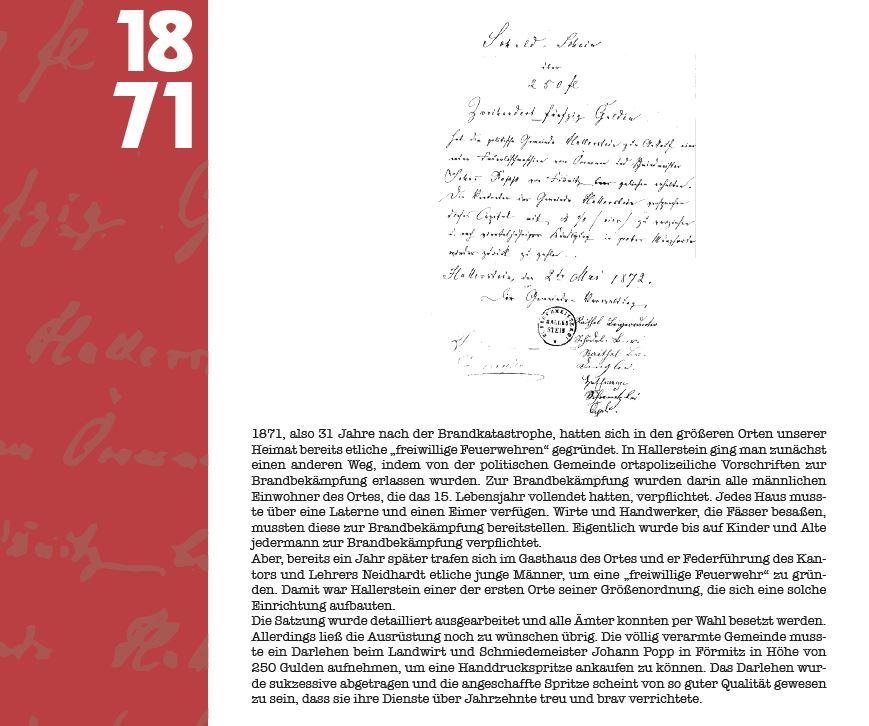 18
71
Schuld-Schein
über
250 fl
Zweihundert fünfzig Gulden
hat die politische Gemeinde Hallerstein zum
von
von Förbnitz
Die der Gemeinde Hallerstein
Capital mit zu
zu
wieder zurück zu
Hallerstein, den 2ten Mai 1872.
Die Gemeinde-Verwaltung,
HALLER
STEIN
1871, also 31 Jahre nach der Brandkatastrophe, hatten sich in den größeren Orten unserer
Heimat bereits etliche „freiwillige Feuerwehren“ gegründet. In Hallerstein ging man zunächst
einen anderen Weg, indem von der politischen Gemeinde ortspolizeiliche Vorschriften zur
Brandbekämpfung erlassen wurden. Zur Brandbekämpfung wurden darin alle männlichen
Einwohner des Ortes, die das 15. Lebensjahr vollendet hatten, verpflichtet. Jedes Haus muss-
te über eine Laterne und einen Eimer verfügen. Wirte und Handwerker, die Fässer besaßen,
mussten diese zur Brandbekämpfung bereitstellen. Eigentlich wurde bis auf Kinder und Alte
jedermann zur Brandbekämpfung verpflichtet.
Aber, bereits ein Jahr später trafen sich im Gasthaus des Ortes und er Federführung des Kan-
tors und Lehrers Neidhardt etliche junge Männer, um eine „freiwillige Feuerwehr“ zu grün-
den. Damit war Hallerstein einer der ersten Orte seiner Größenordnung, die sich eine solche
Einrichtung aufbauten.
Die Satzung wurde detailliert ausgearbeitet und alle Ämter konnten per Wahl besetzt werden.
Allerdings ließ die Ausrüstung noch zu wünschen übrig. Die völlig verarmte Gemeinde muss-
te ein Darlehen beim Landwirt und Schmiedemeister Johann Popp in Förmitz in Höhe von
250 Gulden aufnehmen, um eine Handdruckspritze ankaufen zu können. Das Darlehen wur-
de sukzessive abgetragen und die angeschaffte Spritze scheint von so guter Qualität gewesen
zu sein, dass sie ihre Dienste über Jahrzehnte treu und brav verrichtete.